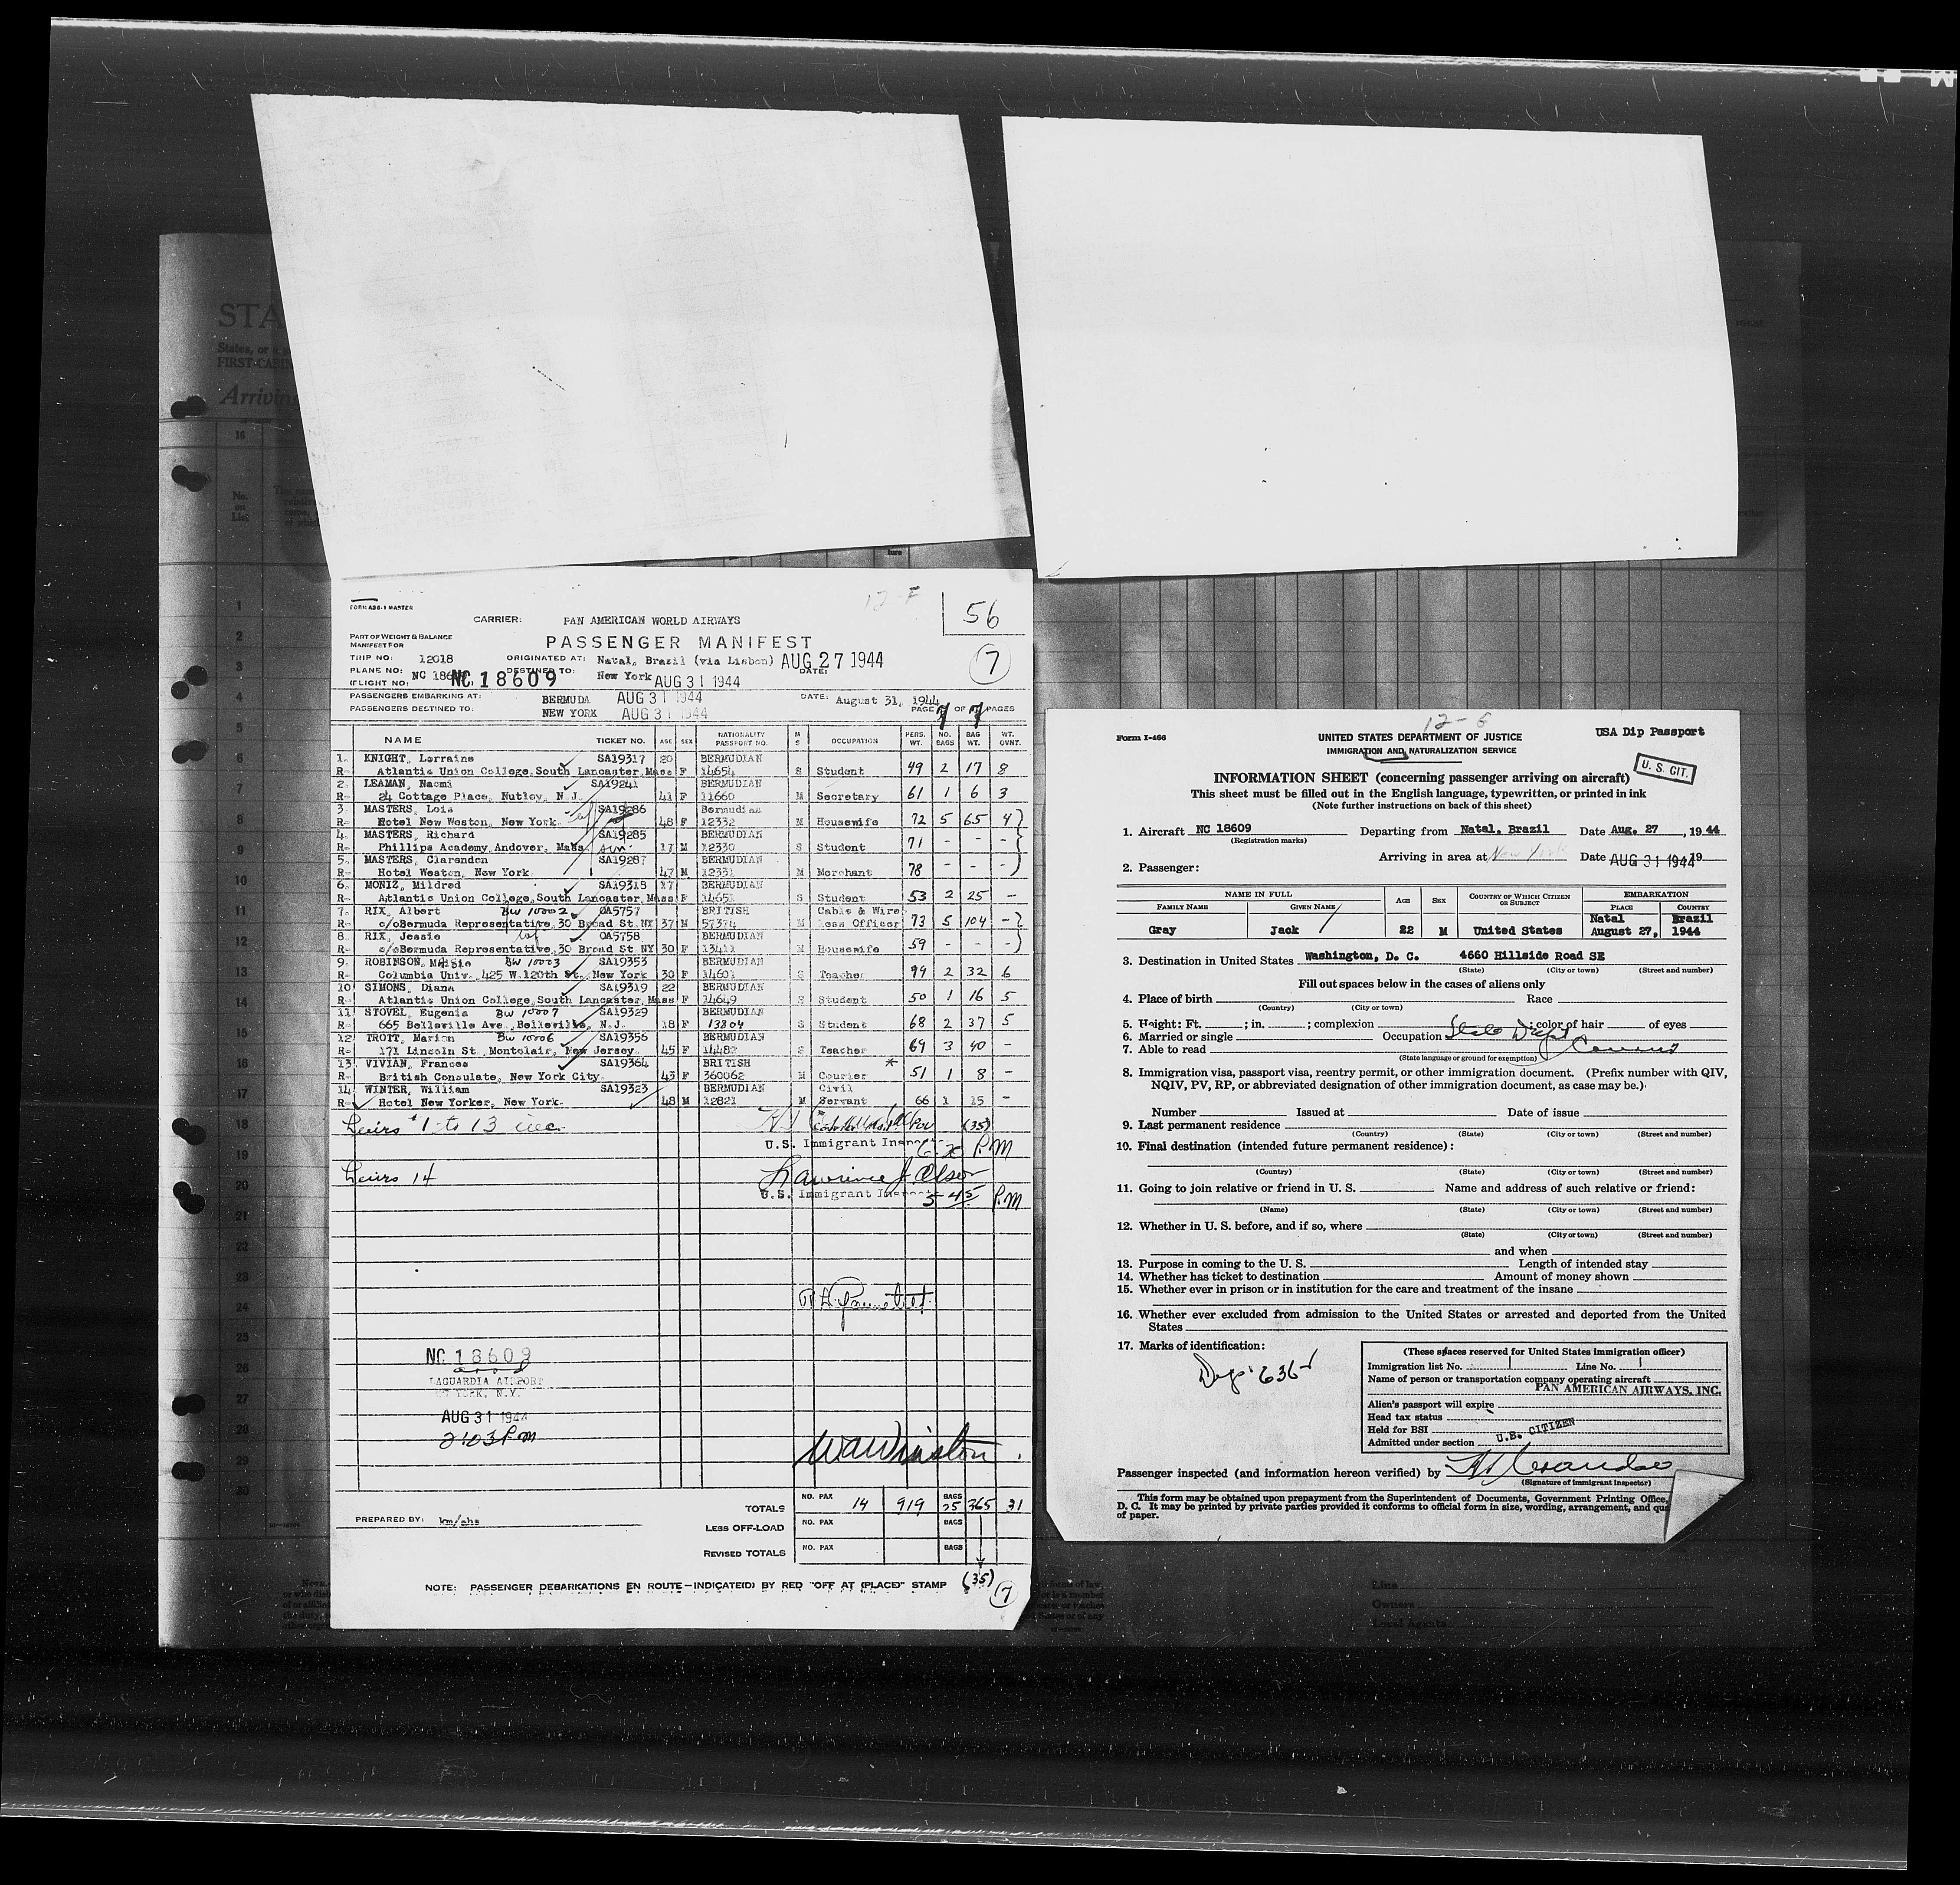 STA
States, or a
FIRST-CABIN
Arriving
16
No.
on
List
1
2
3
4
5
6
7
8
9
10
11
12
13
14
15
16
17
18
19
20
21
22
23
24
25
26
27
28
29
30
FORM AB6-1 MASTER
12-F
56
CARRIER: PAN AMERICAN WORLD AIRWAYS
PART OF WEIGHT & BALANCE
MANIFEST FOR
PASSENGER MANIFEST
7
TRIP NO: 12018 ORIGINATED AT: Natal, Brazil (via Lisbon) AUG 27 1944
PLANE NO: NC 186 NC 18609 DESTINED TO: New York AUG 31 1944 DATE:
(FLIGHT NO:
PASSENGERS EMBARKING AT: BERMUDA AUG 31 1944 DATE: August 31, 1944
PASSENGERS DESTINED TO: NEW YORK AUG 31 1944 PAGE 7 OF 7 PAGES
NAME TICKET NO. AGE SEX NATIONALITY PASSPORT NO. M S OCCUPATION PERS. WT. NO. BAGS BAG WT. WT. OVNT.
1. KNIGHT, Lorraine SA19317 20 BERMUDIAN
R- Atlantic Union College, South Lancaster, Mass F 14654 S Student 49 2 17 8
2. LEAMAN, Naomi SA19241 BERMUDIAN
R- 24 Cottage Place, Nutley, N.J. 41 F 11660 M Secretary 61 1 6 3
3. MASTERS, Lois SA19286 Bermudian
R- Hotel New Weston, New York 48 F 12332 M Housewife 72 5 65 4
4. MASTERS, Richard SA19285 BERMUDIAN
R- Phillips Academy, Andover, Mass 17 M 12330 S Student 71 - - -
5. MASTERS, Clarendon SA19287 BERMUDIAN
R- Hotel Weston, New York. 47 M 12331 M Merchant 78 - - -
6. MONIZ, Mildred SA19318 17 BERMUDIAN
R- Atlantic Union College, South Lancaster, Mass F 14651 S Student 53 2 25 -
7. RIX, Albert BW 10002 OA5757 BRITISH Cable & Wire
R- c/oBermuda Representative, 30 Broad St. NY 37 M 57374 M less Officer 73 5 104 -
8. RIX, Jessie OA5758 BERMUDIAN
R- c/oBermuda Representative, 30 Broad St. NY 30 F 13411 M Housewife 59 - - -
9. ROBINSON, BW 10003 SA19353 BERMUDIAN
R- Columbia Univ., 425 W. 120th St., New York 30 F 14601 S Teacher 99 2 32 6
10 SIMONS, Diana SA19319 22 BERMUDIAN
R- Atlantic Union College, South Lancaster, Mass F 14649 S Student 50 1 16 5
11 STOVEL, Eugenia BW 10007 SA19329 BERMUDIAN
R- 665 Belleville Ave., Belleville, N.J. 18 F 13804 S Student 68 2 37 5
12 TROTT, Marion BW 10006 SA19356 BERMUDIAN
R- 171 Lincoln St., Montclair, New Jersey. 45 F 14482 S Teacher 69 3 40 -
13 VIVIAN, Frances SA19364 BRITISH *
R- British Consulate, New York City. 43 F 360062 M Courier 51 1 8 -
14 WINTER, William SA19323 BERMUDIAN Civil
R- Hotel New Yorker, New York. 48 M 12821 M Servant 66 1 15 -
#1 to 13 inc. (35)
U.S. Immigrant Inspector P.M
14 Lawrence J. Olson
U.S. Immigrant Inspector 5 45 P.M
NC 18609
LAGUARDIA AIRPORT
NEW YORK, N.Y.
AUG 31 1944
2:03 PM
WaWinston
TOTALS NO. PAX 14 919 BAGS 25 365 31
PREPARED BY: km/ahs
LESS OFF-LOAD NO. PAX BAGS
REVISED TOTALS NO. PAX BAGS
NOTE: PASSENGER DEBARKATIONS EN ROUTE—INDICATE(D) BY RED "OFF AT (PLACE)" STAMP (35)
7
12-6
Form I-466 UNITED STATES DEPARTMENT OF JUSTICE USA Dip Passport
IMMIGRATION AND NATURALIZATION SERVICE
U. S. CIT.
INFORMATION SHEET (concerning passenger arriving on aircraft)
This sheet must be filled out in the English language, typewritten, or printed in ink
(Note further instructions on back of this sheet)
1. Aircraft NC 18609 Departing from Natal, Brazil Date Aug. 27, 1944
(Registration marks)
Arriving in area at New York Date AUG 31 1944 19
2. Passenger:
NAME IN FULL AGE SEX COUNTRY OF WHICH CITIZEN OR SUBJECT EMBARKATION
FAMILY NAME GIVEN NAME PLACE COUNTRY
Natal Brazil
Gray Jack 22 M United States August 27, 1944
3. Destination in United States Washington, D. C. 4660 Hillside Road SE
(State) (City or town) (Street and number)
Fill out spaces below in the cases of aliens only
4. Place of birth Race
(Country) (City or town)
5. Height: Ft. ; in. ; complexion ; color of hair of eyes
6. Married or single Occupation State Dept
7. Able to read
(State language or ground for exemption)
8. Immigration visa, passport visa, reentry permit, or other immigration document. (Prefix number with QIV,
NQIV, PV, RP, or abbreviated designation of other immigration document, as case may be.)
Number Issued at Date of issue
9. Last permanent residence
(Country) (State) (City or town) (Street and number)
10. Final destination (intended future permanent residence):
(Country) (State) (City or town) (Street and number)
11. Going to join relative or friend in U. S. Name and address of such relative or friend:
(Name) (State) (City or town) (Street and number)
12. Whether in U. S. before, and if so, where
(State) (City or town) (Street and number)
and when
13. Purpose in coming to the U. S. Length of intended stay
14. Whether has ticket to destination Amount of money shown
15. Whether ever in prison or in institution for the care and treatment of the insane
16. Whether ever excluded from admission to the United States or arrested and deported from the United
States
17. Marks of identification:
(These spaces reserved for United States immigration officer)
Immigration list No. 1 Line No. 1
Name of person or transportation company operating aircraft
PAN AMERICAN AIRWAYS, INC.
Alien's passport will expire
Head tax status
Held for BSI
U.S. CITIZEN
Admitted under section
Passenger inspected (and information hereon verified) by
(Signature of immigrant inspector)
This form may be obtained upon prepayment from the Superintendent of Documents, Government Printing Office,
D. C. It may be printed by private parties provided it conforms to official form in size, wording, arrangement, and
of paper.
Line
Owners
Local Agents